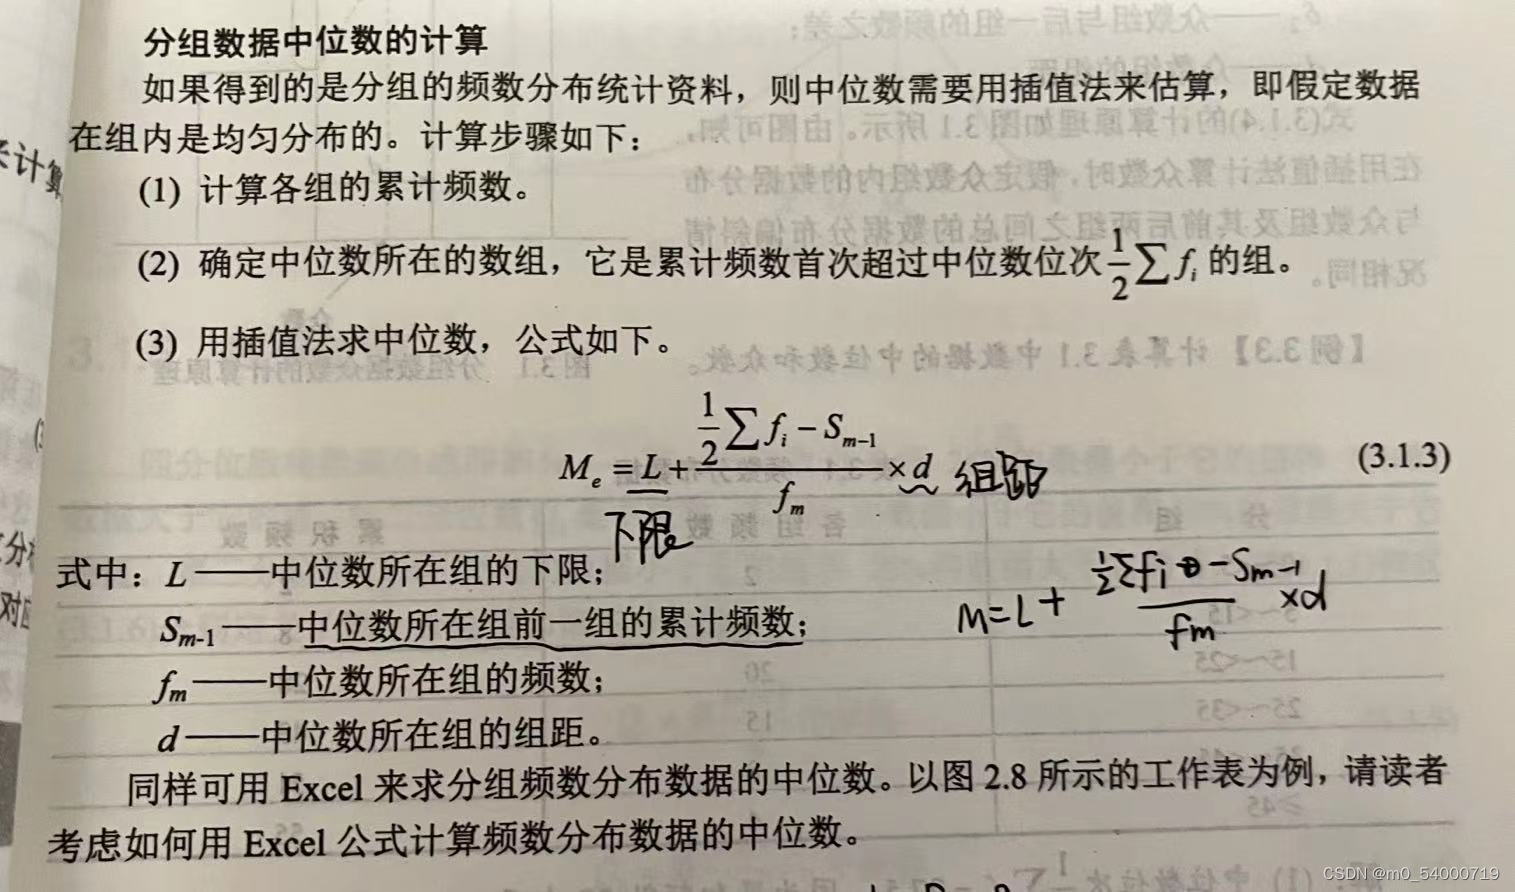 分组数据中位数的计算
如果得到的是分组的频数分布统计资料，则中位数需要用插值法来估算，即假定数据
在组内是均匀分布的。计算步骤如下：
(1) 计算各组的累计频数。
(2) 确定中位数所在的数组，它是累计频数首次超过中位数位次 1/2 ∑ f_i 的组。
(3) 用插值法求中位数，公式如下。
M_e = L + (1/2 ∑ f_i − S_{m-1}) / f_m × d 组距 (3.1.3)
下限
式中：L ——中位数所在组的下限；
S_{m-1} ——中位数所在组前一组的累计频数；
M = L + (1/2 ∑ f_i − S_{m-1}) / f_m × d
f_m ——中位数所在组的频数；
d ——中位数所在组的组距。
同样可用 Excel 来求分组频数分布数据的中位数。以图 2.8 所示的工作表为例，请读者
考虑如何用 Excel 公式计算频数分布数据的中位数。
CSDN @m0_54000719